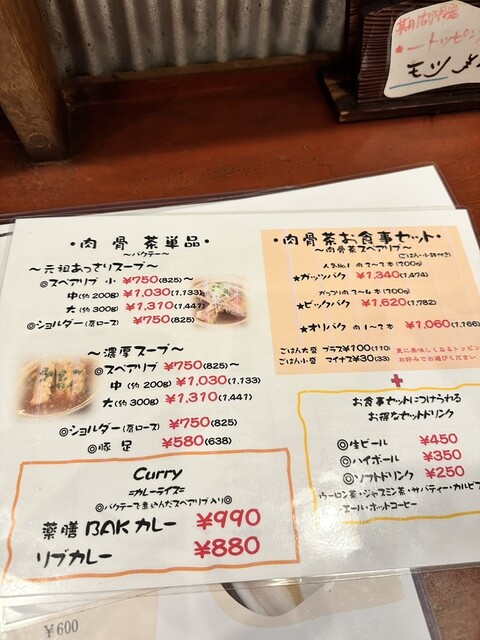 期間限定
トッピング
モツ
・肉骨茶単品・
〜バクテー〜
〜元祖あっさりスープ〜
◎スペアリブ 小 ¥750(825)〜
中(約200g) ¥1,030(1,133)
大(約300g) ¥1,310(1,441)
◎ショルダー(肩ロース) ¥750(825)
〜濃厚スープ〜
◎スペアリブ ¥750(825)〜
中(約200g) ¥1,030(1,133)
大(約300g) ¥1,310(1,441)
◎ショルダー(肩ロース) ¥750(825)
◎豚足 ¥580(638)
Curry
=カレーライス=
◎バクテーで煮込んだスペアリブ入り◎
薬膳BAKカレー ¥990
リブカレー ¥880
・肉骨茶お食事セット・
〜肉骨茶スペアリブ〜
ごはん・小鉢付き
人気No.1 肉2〜3本(200g)
★ガッツリバク ¥1,340(1,474)
肉3〜4本(300g)
★ビックバク ¥1,620(1,782)
★オリバク 肉1〜2本 ¥1,060(1,166)
ごはん大盛 プラス¥100(110)
ごはん小盛 マイナス¥30(33)
更に美味しくなるトッピン
お好みでお選びください
+
お食事セットにつけられる
お得なセットドリンク
◎生ビール ¥450
◎ハイボール ¥350
◎ソフトドリンク ¥250
ウーロン茶・ジャスミン茶・サパティー・カルピス
エール・ホットコーヒー
¥600